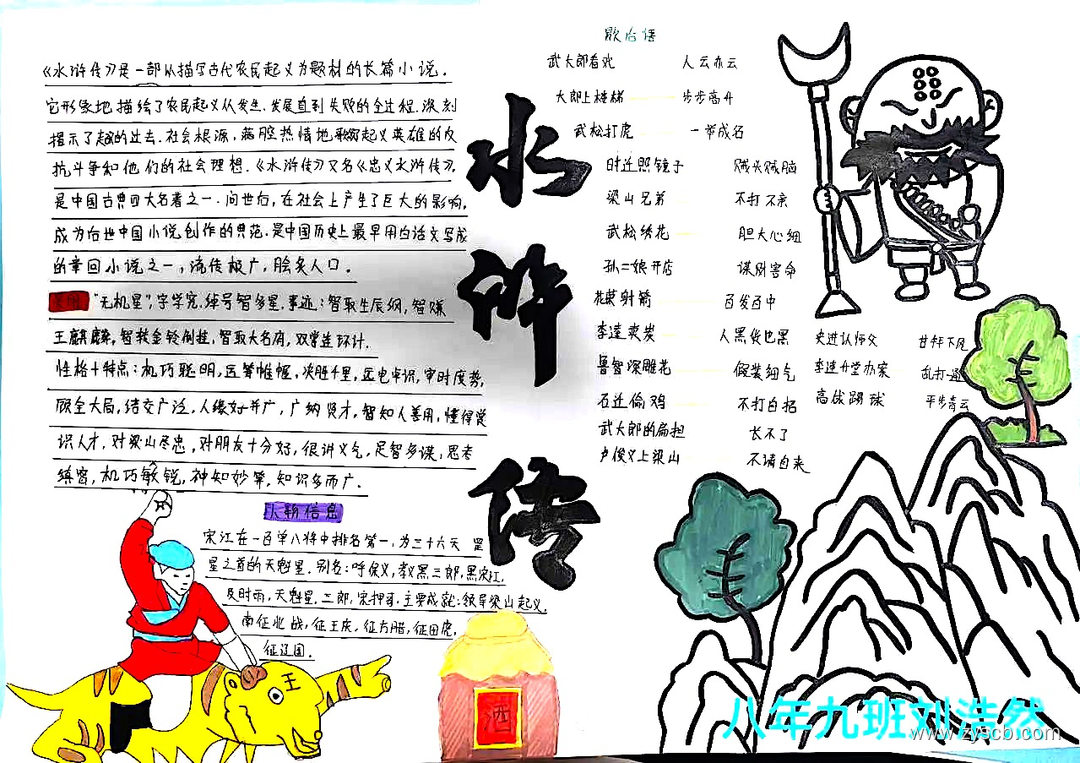 《水浒传》是一部以描写古代农民起义为题材的长篇小说.
它形象地描绘了农民起义从发生.发展直到失败的全过程.深刻
揭示了起义的过去.社会根源,满腔热情地歌颂起义英雄的反
抗斗争和他们的社会理想.《水浒传》又名《忠义水浒传》,
是中国古典四大名著之一.问世后,在社会上产生了巨大的影响,
成为后世中国小说创作的典范.是中国历史上最早用白话文写成
的章回小说之一,流传极广,脍炙人口.
"天机星",字学究.绰号智多星,事迹:智取生辰纲,智赚
玉麒麟,智救金铃倒挂,智取大名府,双掌连环计.
性格十特点:机巧聪明,运筹帷幄,决胜千里,审时度势,
顾全大局,结交广泛,人缘好并广,广纳贤才,智知人善用,懂得赏
识人才,对梁山尽忠,对朋友十分好,很讲义气,足智多谋,思考
缜密,机巧敏锐,神知妙算,知识多而广.
人物信息
宋江在一百单八将中排名第一,为三十六天罡
星之首的天魁星.别名:呼保义,孝义黑三郎,黑宋江,
及时雨,天魁星,二郎,宋押司.主要成就:领导梁山起义,
南征北战,征王庆,征方腊,征田虎,
征辽国.
水浒传
歇后语
武大郎看戏 人云亦云
大郎上楼梯 步步高升
武松打虎 一举成名
时迁照镜子 贼头贼脑
梁山兄弟 不打不亲
武松绣花 胆大心细
孙二娘开店 谋财害命
花荣射箭 百发百中
李逵卖炭 人黑货也黑
鲁智深雕花 假装细气
石迁偷鸡 不打自招
武大郎的扁担 长不了
卢俊义上梁山 不请自来
史进认师父 甘拜下风
李逵升堂办案 乱打一通
高俅踢球 平步青云
王
酒
八年九班刘浩然
www.zyscb.com